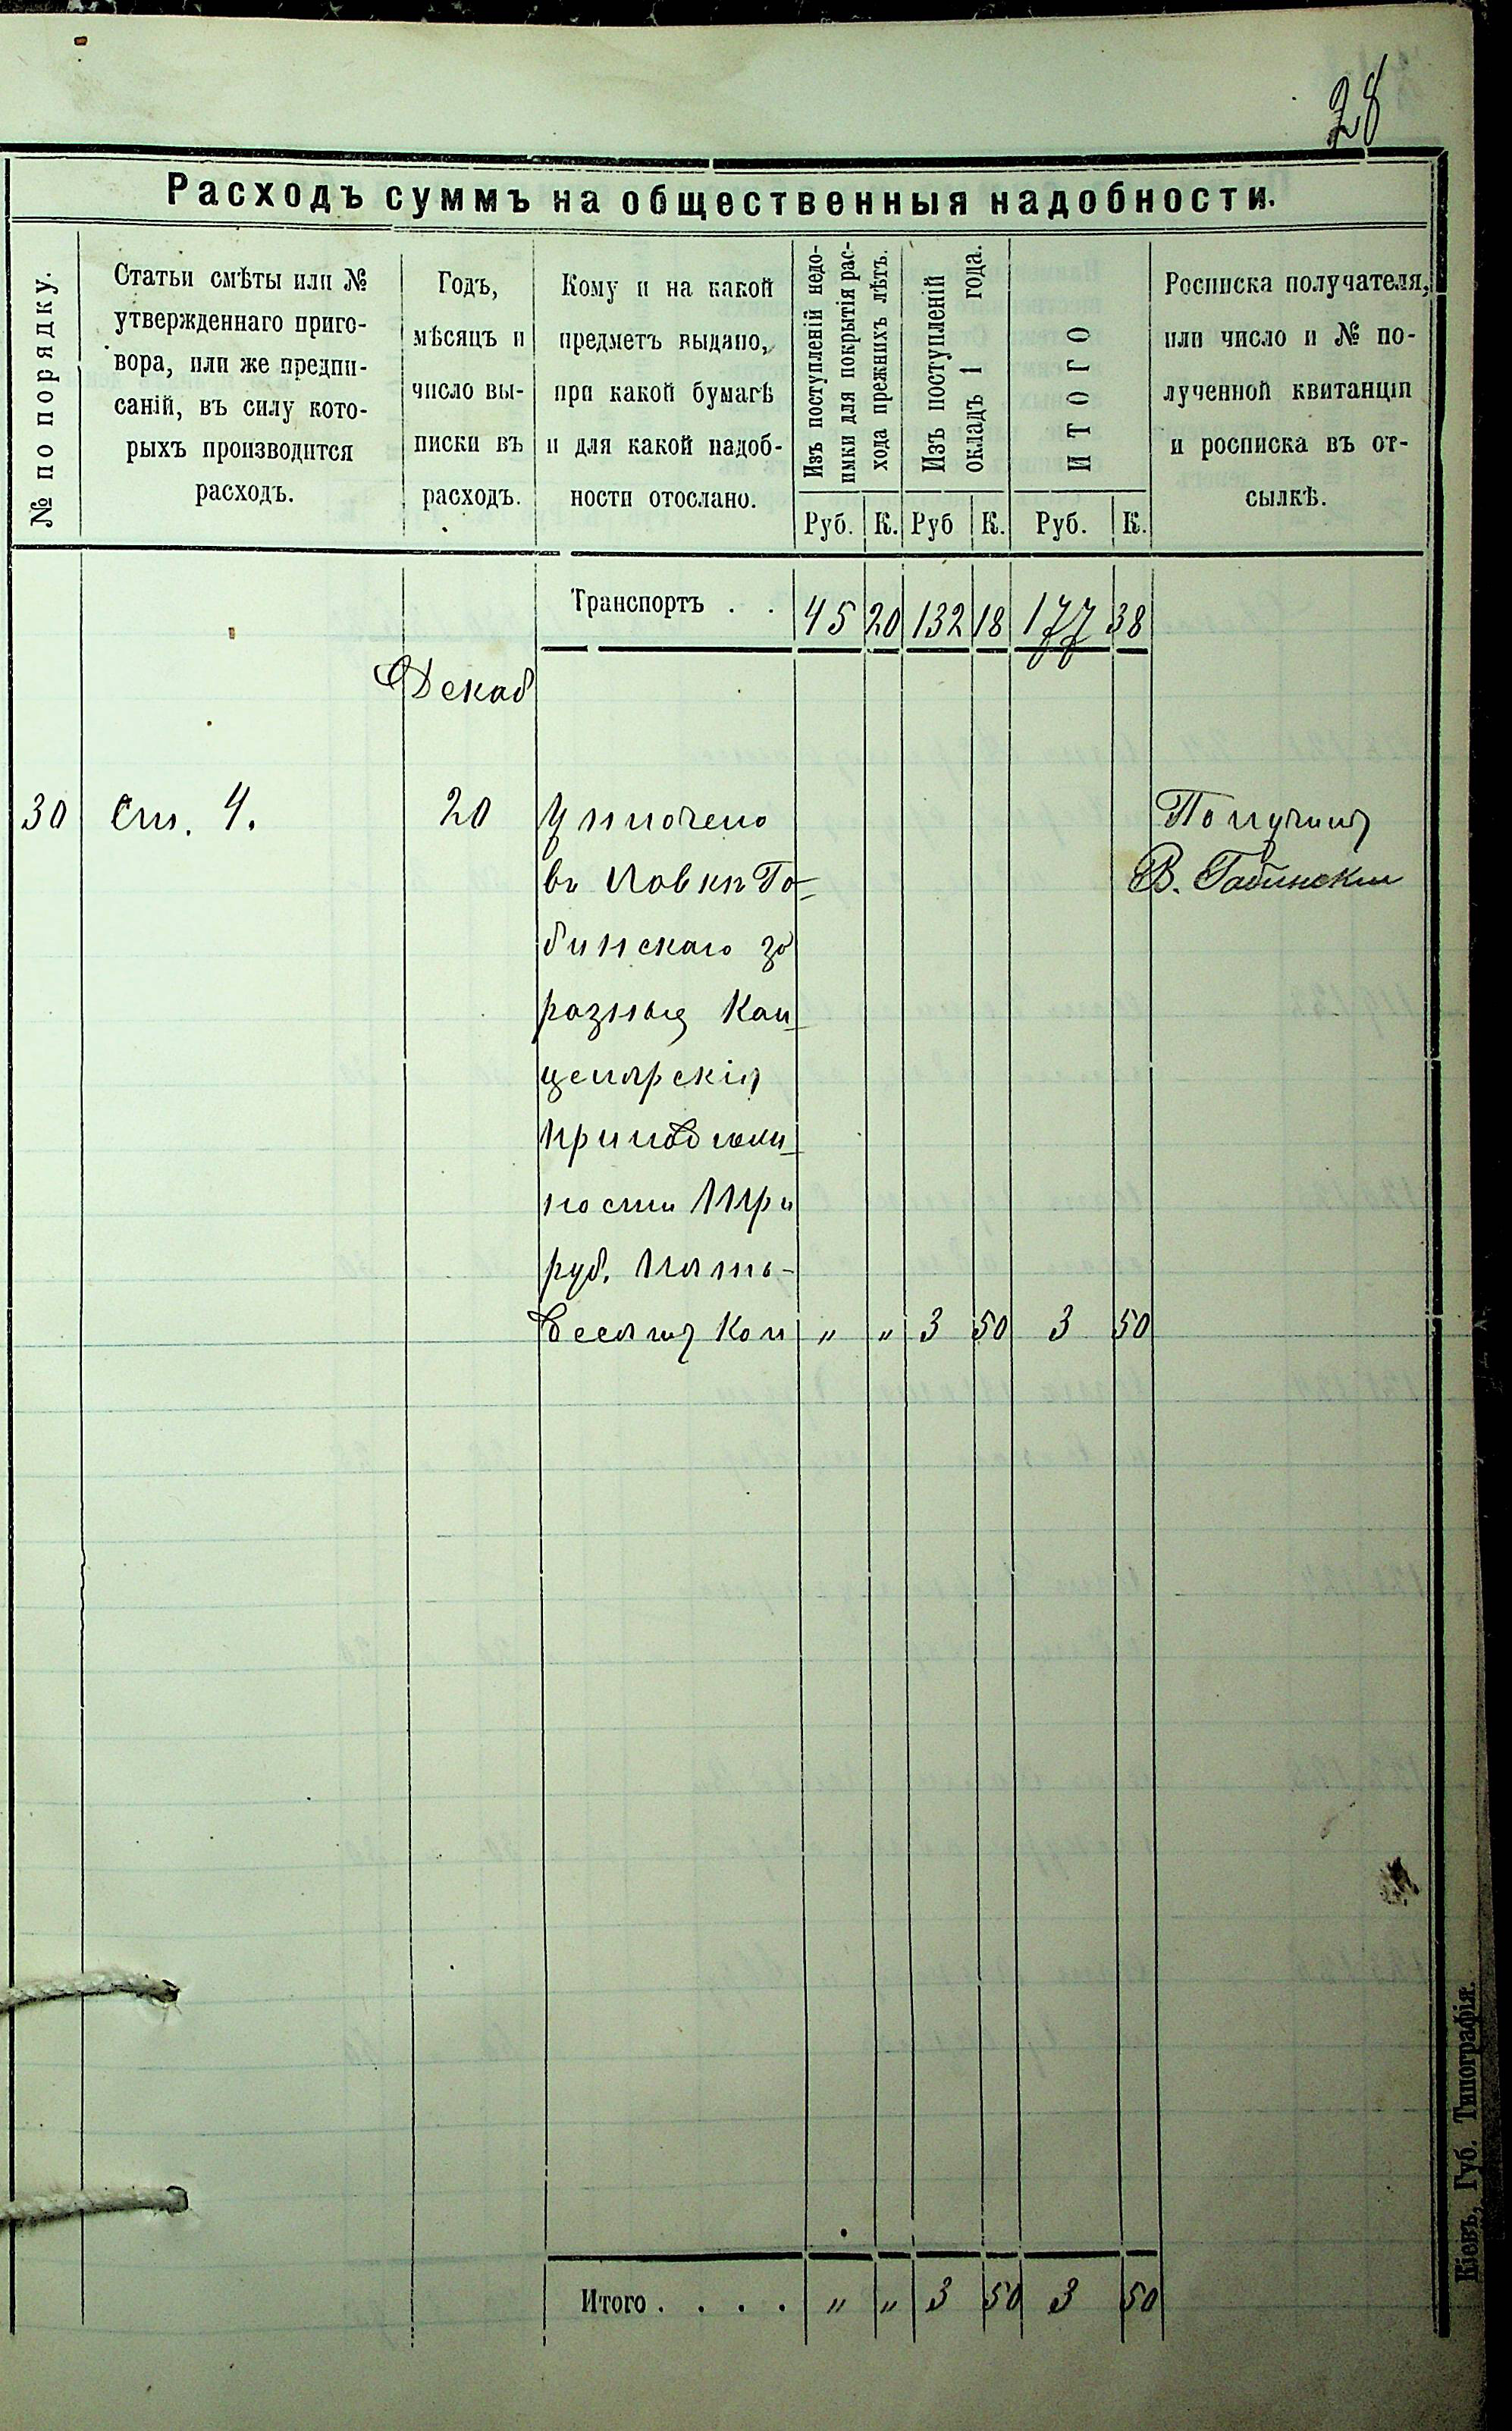 28
Расходъ суммъ на общественныя надобности.
№ по порядку.
Статьи смѣты или №
утвержденнаго приго-
вора, или же предпи-
саній, въ силу кото-
рыхъ производится
расходъ.
Годъ,
мѣсяцъ и
число вы-
писки въ
расходъ.
Кому и на какой
предметъ выдано,
при какой бумагѣ
и для какой надоб-
ности отослано.
Изъ поступленій недо-
имки для покрытія рас-
хода прежнихъ лѣтъ.
Изъ поступленій
окладъ 1 года.
ИТОГО
Росписка получателя,
или число и № по-
лученной квитанціи
и росписка въ от-
сылкѣ.
Руб. К. Руб К. Руб. К.
Транспортъ . . 45 20 132 18 177 38
Декаб
30 Ст. 4. 20 Уплочено Получилъ
въ лавкѣ Га- В. Габинскій
бинскаго за
разныя Кан
целярскія
принадлеж
ности три
руб. пять-
десятъ Коп „ „ 3 50 3 50
Итого . . . . „ „ 3 50 3 50
Кіевъ, Губ. Типографія.